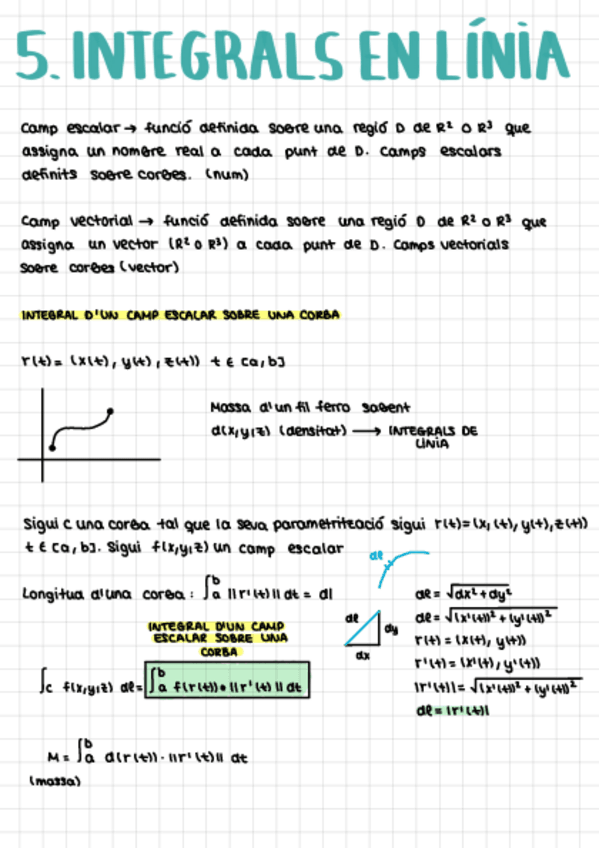 5. INTEGRALS EN LÍNIA
Camp escalar → funció definida sobre una regió D de R² o R³ que
assigna un nombre real a cada punt de D. Camps escalars
definits sobre corbes. (num)
Camp vectorial → funció definida sobre una regió D de R² o R³ que
assigna un vector (R² o R³) a cada punt de D. Camps vectorials
sobre corbes (vector)
INTEGRAL D'UN CAMP ESCALAR SOBRE UNA CORBA
r(t) = (x(t), y(t), z(t)) t ∈ [a,b]
Massa d'un fil ferro sabent
d(x,y,z) (densitat) → INTEGRALS DE
LÍNIA
Sigui C una corba tal que la seva parametrització sigui r(t)=(x,(t), y(t), z(t))
t ∈ [a,b]. Sigui f(x,y,z) un camp escalar
dl
Longitud d'una corba: ∫ₐᵇ ||r'(t)|| dt = dl
dl = √dx² + dy²
dl
dy
dx
dl = √(x'(t))² + (y'(t))²
r(t) = (x(t), y(t))
r'(t) = (x'(t), y'(t))
|r'(t)| = √(x'(t))² + (y'(t))²
dl = |r'(t)|
INTEGRAL D'UN CAMP
ESCALAR SOBRE UNA
CORBA
∫c f(x,y,z) dl = ∫ₐᵇ f(r(t)) • ||r'(t)|| dt
M = ∫ₐᵇ d(r(t)) · ||r'(t)|| dt
(massa)